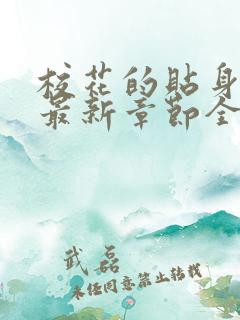 校花的贴身
最新章节全
武磊
未经同意禁止转载